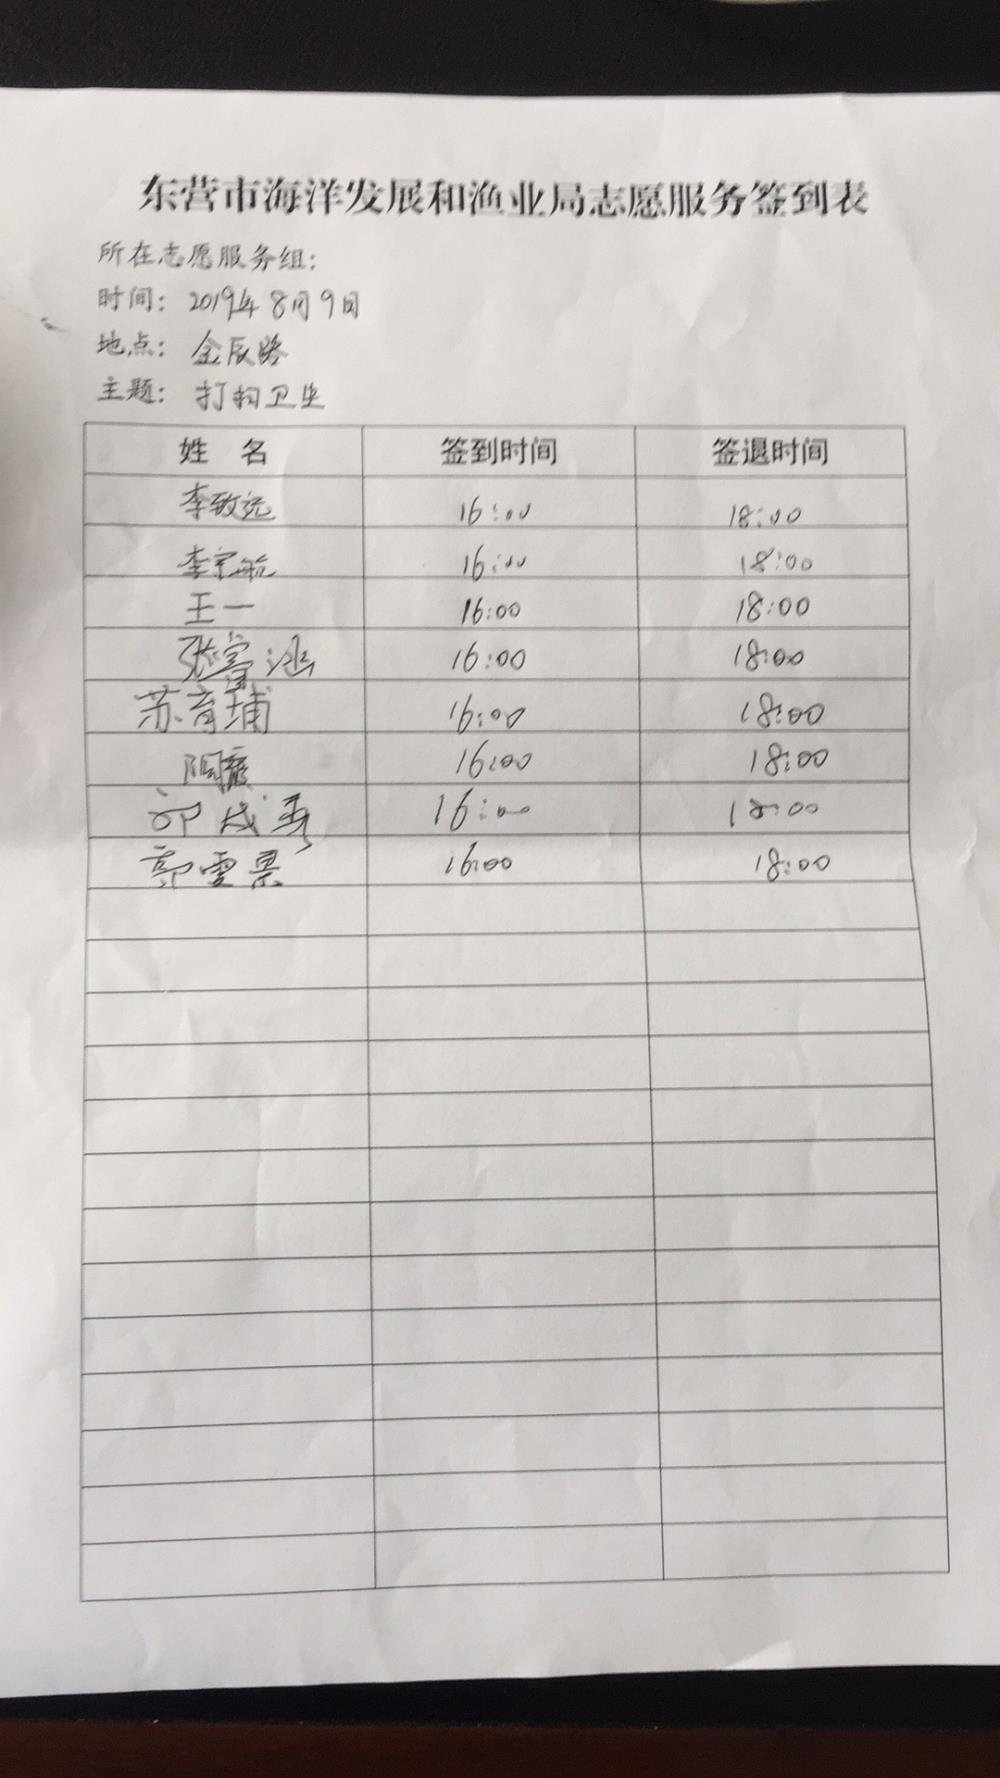 东营市海洋发展和渔业局志愿服务签到表
所在志愿服务组:
时间: 2019年8月9日
地点: 金辰路
主题: 打扫卫生
姓 名 签到时间 签退时间
李致远 16:00 18:00
李宇航 16:00 18:00
王一 16:00 18:00
张 涵 16:00 18:00
苏育埔 16:00 18:00
16:00 18:00
16:00 18:00
郭雪景 16:00 18:00